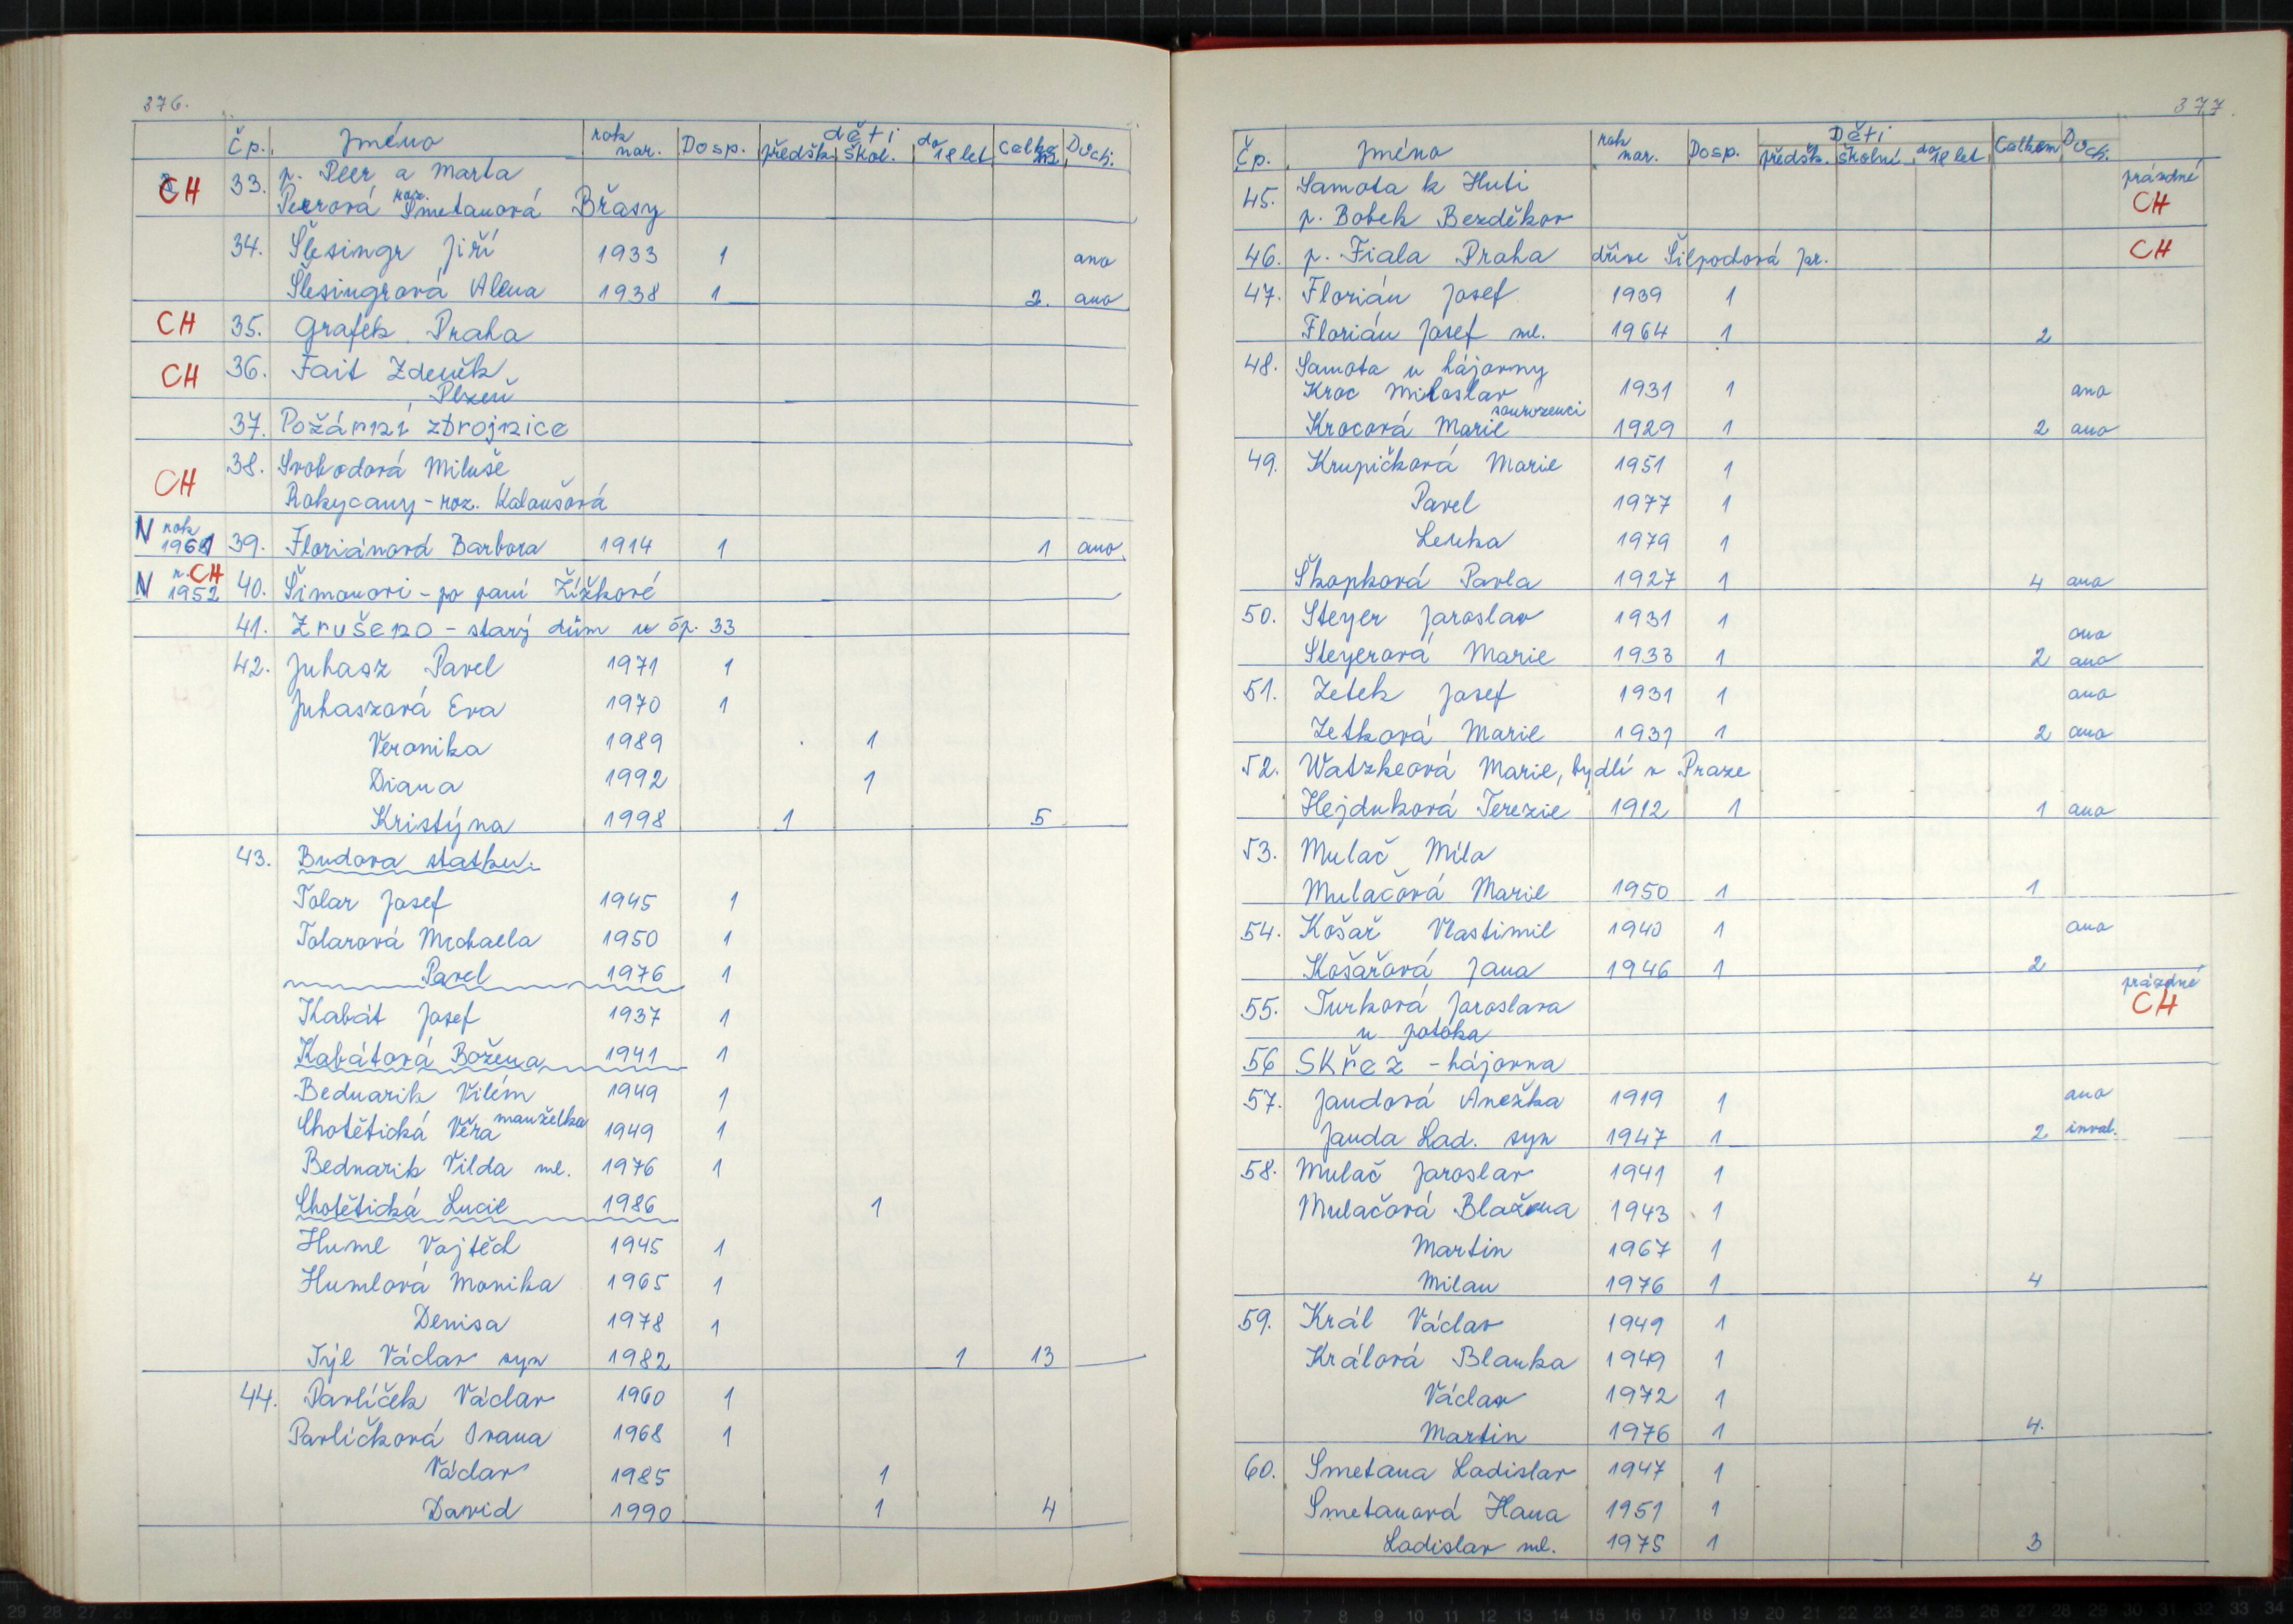 376.
Čp. Jméno rok nar. Dosp. děti předšk. škol. do 18 let Celkem Důch.
CH 33. p. Peer a Marta
Peerová roz. Smetanová Břasy
34. Šlesingr Jiří 1933 1 ano
Šlesingrová Alena 1938 1 2. ano
CH 35. Grafek Praha
CH 36. Fait Zdeněk
Plzeň
37. Požární zbrojnice
CH 38. Svobodová Miluše
Rokycany - roz. Kaloušová
N rok
39. Floriánová Barbora 1914 1 1 ano
N r. CH
1952 40. Šimonovi - po paní Žížkové
41. Zrušeno - starý dům u čp. 33
42. Juhasz Pavel 1971 1
Juhaszová Eva 1970 1
Veronika 1989 1
Diana 1992 1
Kristýna 1998 1 5
43. Budova statku:
Tolar Josef 1945 1
Tolarová Michaela 1950 1
Pavel 1976 1
Kabát Josef 1937 1
Kabátová Božena 1941 1
Bednarik Vilém 1949 1
Chotětická Věra manželka 1949 1
Bednarik Vilda ml. 1976 1
Chotětická Lucie 1986 1
Huml Vojtěch 1945 1
Humlová Monika 1965 1
Denisa 1978 1
Týl Václav syn 1982 1 13
44. Pavlíček Václav 1960 1
Pavlíčková Ivana 1968 1
Václav 1985 1
David 1990 1 4
377.
Čp. Jméno rok nar. Dosp. Děti předšk. školní do 18 let Celkem Důch.
45. Samota k Huti prázdné
p. Bobek Bezděkov CH
46. p. Fiala Praha dříve Šilpochová Jar. CH
47. Florián Josef 1939 1
Florián Josef ml. 1964 1 2
48. Samota u hájovny
Kroc Miloslav 1931 1 ano
sourozenci
Krocová Marie 1929 1 2 ano
49. Krupičková Marie 1951 1
Pavel 1977 1
Lenka 1979 1
Škopková Pavla 1927 1 4 ano
50. Steyer Jaroslav 1931 1 ano
Steyerová Marie 1933 1 2 ano
51. Zetek Josef 1931 1 ano
Zetková Marie 1931 1 2 ano
52. Watzkeová Marie, bydlí v Praze
Hejduková Terezie 1912 1 1 ano
53. Mulač Míla
Mulačová Marie 1950 1 1
54. Košař Vlastimil 1940 1 ano
Košařová Jana 1946 1 2
55. Turková Jaroslava prázdné CH
u potoka
56 Skřež - hájovna
57. Jandová Anežka 1919 1 ano
Janda Lad. syn 1947 1 2 inval.
58. Mulač Jaroslav 1941 1
Mulačová Blažena 1943 1
Martin 1967 1
Milan 1976 1 4
59. Král Václav 1949 1
Králová Blanka 1949 1
Václav 1972 1
Martin 1976 1 4.
60. Smetana Ladislav 1947 1
Smetanová Hana 1951 1
Ladislav ml. 1975 1 3